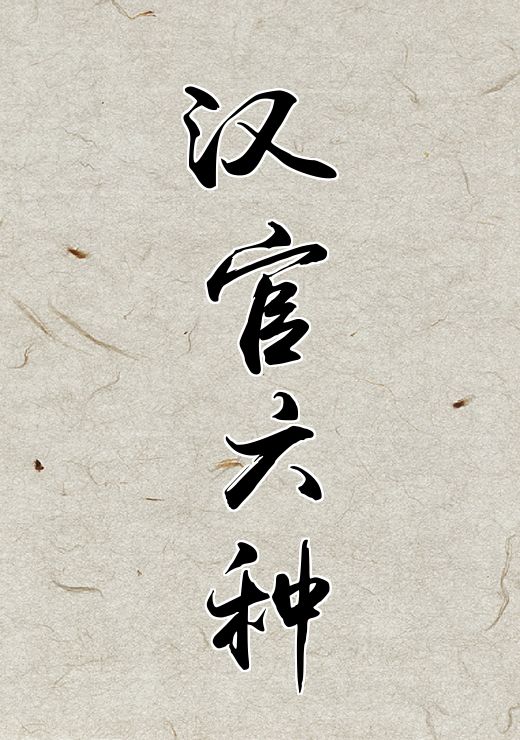 汉官六种